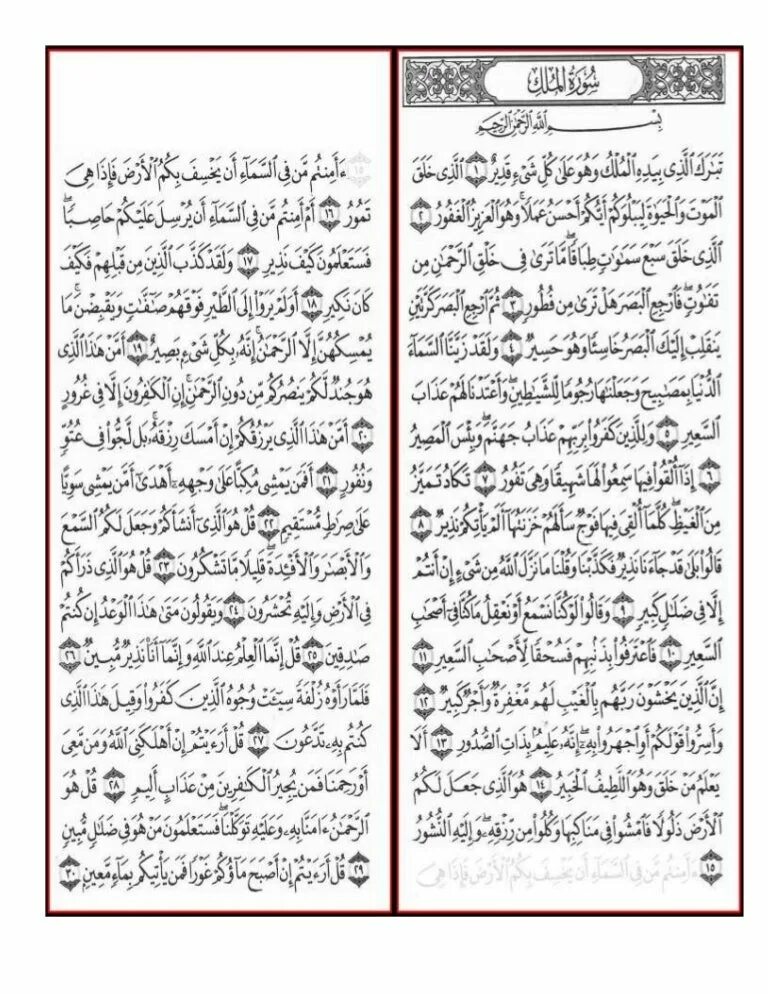 سُورَةُ المُلْكِ
بِسْمِ ٱللَّهِ ٱلرَّحْمَٰنِ ٱلرَّحِيمِ
تَبَٰرَكَ ٱلَّذِى بِيَدِهِ ٱلْمُلْكُ وَهُوَ عَلَىٰ كُلِّ شَىْءٍ قَدِيرٌ ١ ٱلَّذِى خَلَقَ
ٱلْمَوْتَ وَٱلْحَيَوٰةَ لِيَبْلُوَكُمْ أَيُّكُمْ أَحْسَنُ عَمَلًا وَهُوَ ٱلْعَزِيزُ ٱلْغَفُورُ ٢
ٱلَّذِى خَلَقَ سَبْعَ سَمَٰوَٰتٍ طِبَاقًا مَّا تَرَىٰ فِى خَلْقِ ٱلرَّحْمَٰنِ مِن
تَفَٰوُتٍ ۖ فَٱرْجِعِ ٱلْبَصَرَ هَلْ تَرَىٰ مِن فُطُورٍ ٣ ثُمَّ ٱرْجِعِ ٱلْبَصَرَ كَرَّتَيْنِ
يَنقَلِبْ إِلَيْكَ ٱلْبَصَرُ خَاسِئًا وَهُوَ حَسِيرٌ ٤ وَلَقَدْ زَيَّنَّا ٱلسَّمَآءَ
ٱلدُّنْيَا بِمَصَٰبِيحَ وَجَعَلْنَٰهَا رُجُومًا لِّلشَّيَٰطِينِ ۖ وَأَعْتَدْنَا لَهُمْ عَذَابَ
ٱلسَّعِيرِ ٥ وَلِلَّذِينَ كَفَرُوا۟ بِرَبِّهِمْ عَذَابُ جَهَنَّمَ ۖ وَبِئْسَ ٱلْمَصِيرُ
٦ إِذَآ أُلْقُوا۟ فِيهَا سَمِعُوا۟ لَهَا شَهِيقًا وَهِىَ تَفُورُ ٧ تَكَادُ تَمَيَّزُ
مِنَ ٱلْغَيْظِ ۖ كُلَّمَآ أُلْقِىَ فِيهَا فَوْجٌ سَأَلَهُمْ خَزَنَتُهَآ أَلَمْ يَأْتِكُمْ نَذِيرٌ ٨
قَالُوا۟ بَلَىٰ قَدْ جَآءَنَا نَذِيرٌ فَكَذَّبْنَا وَقُلْنَا مَا نَزَّلَ ٱللَّهُ مِن شَىْءٍ إِنْ أَنتُمْ
إِلَّا فِى ضَلَٰلٍ كَبِيرٍ ٩ وَقَالُوا۟ لَوْ كُنَّا نَسْمَعُ أَوْ نَعْقِلُ مَا كُنَّا فِىٓ أَصْحَٰبِ
ٱلسَّعِيرِ ١٠ فَٱعْتَرَفُوا۟ بِذَنۢبِهِمْ فَسُحْقًا لِّأَصْحَٰبِ ٱلسَّعِيرِ ١١
إِنَّ ٱلَّذِينَ يَخْشَوْنَ رَبَّهُم بِٱلْغَيْبِ لَهُم مَّغْفِرَةٌ وَأَجْرٌ كَبِيرٌ ١٢
وَأَسِرُّوا۟ قَوْلَكُمْ أَوِ ٱجْهَرُوا۟ بِهِۦٓ ۖ إِنَّهُۥ عَلِيمٌۢ بِذَاتِ ٱلصُّدُورِ ١٣ أَلَا
يَعْلَمُ مَنْ خَلَقَ وَهُوَ ٱللَّطِيفُ ٱلْخَبِيرُ ١٤ هُوَ ٱلَّذِى جَعَلَ لَكُمُ
ٱلْأَرْضَ ذَلُولًا فَٱمْشُوا۟ فِى مَنَاكِبِهَا وَكُلُوا۟ مِن رِّزْقِهِۦ ۖ وَإِلَيْهِ ٱلنُّشُورُ
١٥ ءَأَمِنتُم مَّن فِى ٱلسَّمَآءِ أَن يَخْسِفَ بِكُمُ ٱلْأَرْضَ فَإِذَا هِىَ
١٥ ءَأَمِنتُم مَّن فِى ٱلسَّمَآءِ أَن يَخْسِفَ بِكُمُ ٱلْأَرْضَ فَإِذَا هِىَ
تَمُورُ ١٦ أَمْ أَمِنتُم مَّن فِى ٱلسَّمَآءِ أَن يُرْسِلَ عَلَيْكُمْ حَاصِبًا ۖ
فَسَتَعْلَمُونَ كَيْفَ نَذِيرِ ١٧ وَلَقَدْ كَذَّبَ ٱلَّذِينَ مِن قَبْلِهِمْ فَكَيْفَ
كَانَ نَكِيرِ ١٨ أَوَلَمْ يَرَوْا۟ إِلَى ٱلطَّيْرِ فَوْقَهُمْ صَٰٓفَّٰتٍ وَيَقْبِضْنَ ۚ مَا
يُمْسِكُهُنَّ إِلَّا ٱلرَّحْمَٰنُ ۚ إِنَّهُۥ بِكُلِّ شَىْءٍۭ بَصِيرٌ ١٩ أَمَّنْ هَٰذَا ٱلَّذِى
هُوَ جُندٌ لَّكُمْ يَنصُرُكُم مِّن دُونِ ٱلرَّحْمَٰنِ ۚ إِنِ ٱلْكَٰفِرُونَ إِلَّا فِى غُرُورٍ
٢٠ أَمَّنْ هَٰذَا ٱلَّذِى يَرْزُقُكُمْ إِنْ أَمْسَكَ رِزْقَهُۥ ۚ بَل لَّجُّوا۟ فِى عُتُوٍّ
وَنُفُورٍ ٢١ أَفَمَن يَمْشِى مُكِبًّا عَلَىٰ وَجْهِهِۦٓ أَهْدَىٰٓ أَمَّن يَمْشِى سَوِيًّا
عَلَىٰ صِرَٰطٍ مُّسْتَقِيمٍ ٢٢ قُلْ هُوَ ٱلَّذِىٓ أَنشَأَكُمْ وَجَعَلَ لَكُمُ ٱلسَّمْعَ
وَٱلْأَبْصَٰرَ وَٱلْأَفْـِٔدَةَ ۖ قَلِيلًا مَّا تَشْكُرُونَ ٢٣ قُلْ هُوَ ٱلَّذِى ذَرَأَكُمْ
فِى ٱلْأَرْضِ وَإِلَيْهِ تُحْشَرُونَ ٢٤ وَيَقُولُونَ مَتَىٰ هَٰذَا ٱلْوَعْدُ إِن كُنتُمْ
صَٰدِقِينَ ٢٥ قُلْ إِنَّمَا ٱلْعِلْمُ عِندَ ٱللَّهِ وَإِنَّمَآ أَنَا۠ نَذِيرٌ مُّبِينٌ ٢٦
فَلَمَّا رَأَوْهُ زُلْفَةً سِيٓـَٔتْ وُجُوهُ ٱلَّذِينَ كَفَرُوا۟ وَقِيلَ هَٰذَا ٱلَّذِى
كُنتُم بِهِۦ تَدَّعُونَ ٢٧ قُلْ أَرَءَيْتُمْ إِنْ أَهْلَكَنِىَ ٱللَّهُ وَمَن مَّعِىَ
أَوْ رَحِمَنَا فَمَن يُجِيرُ ٱلْكَٰفِرِينَ مِنْ عَذَابٍ أَلِيمٍ ٢٨ قُلْ هُوَ
ٱلرَّحْمَٰنُ ءَامَنَّا بِهِۦ وَعَلَيْهِ تَوَكَّلْنَا ۖ فَسَتَعْلَمُونَ مَنْ هُوَ فِى ضَلَٰلٍ مُّبِينٍ
٢٩ قُلْ أَرَءَيْتُمْ إِنْ أَصْبَحَ مَآؤُكُمْ غَوْرًا فَمَن يَأْتِيكُم بِمَآءٍ مَّعِينٍۭ ٣٠